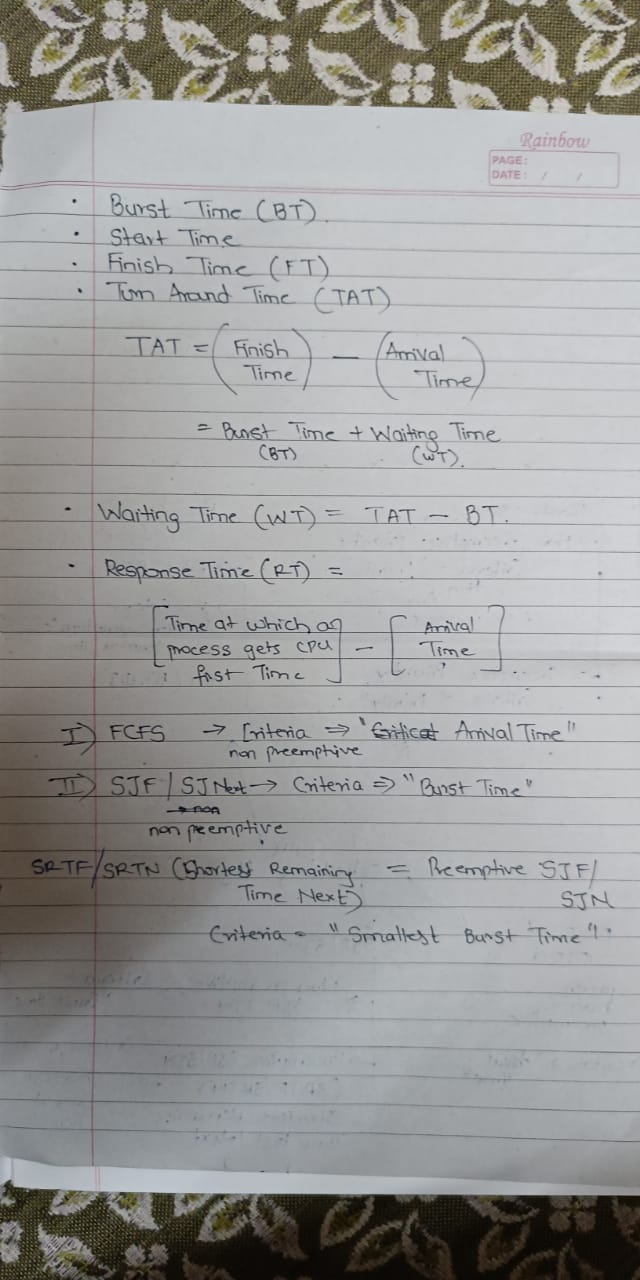 Rainbow
PAGE:
DATE: / /
• Burst Time (BT).
• Start Time
• Finish Time (FT)
• Turn Around Time (TAT)
TAT = (Finish Time) - (Arrival Time)
= Burst Time + Waiting Time
(BT) (WT).
• Waiting Time (WT) = TAT - BT.
• Response Time (RT) =
[Time at which a process gets CPU first Time] - [Arrival Time]
I) FCFS → Criteria ⇒ "Arrival Time"
non preemptive
II) SJF / SJNext → Criteria ⇒ "Burst Time"
→ non
non preemptive
SRTF/SRTN (Shortest Remaining = Preemptive SJF/
Time Next) SJN
Criteria = "Smallest Burst Time".